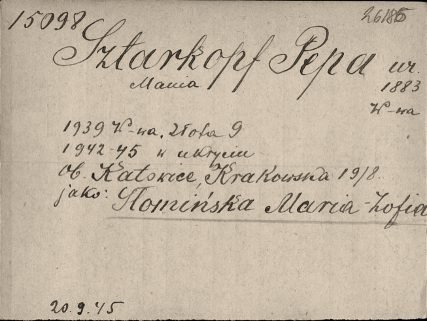 15098
26186
Sztarkopf Pepa ur.
Mania 1883
W-wa
1939 W-wa, Złota 9
1942-45 w ukryciu
ob. Katowice, Krakowska 19/8.
jako: Słomińska Maria-Zofia
20.9.45